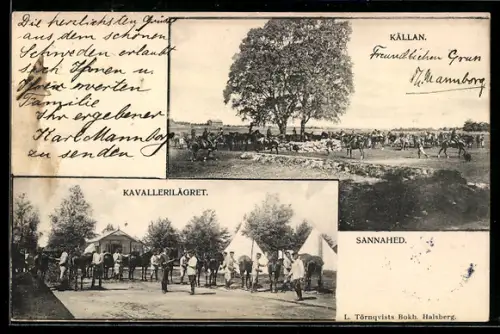 Die herzlichsten Grüsse
aus dem schönen
Schweden erlaubt
sich Ihnen u
Ihrer werten
Familie
Ihr ergebener
Karl Mannborg
zu senden
KÄLLAN.
Freundlichen Gruss
Mannborg
KAVALLERILÄGRET.
SANNAHED.
L. Törnqvists Bokh. Halsberg.